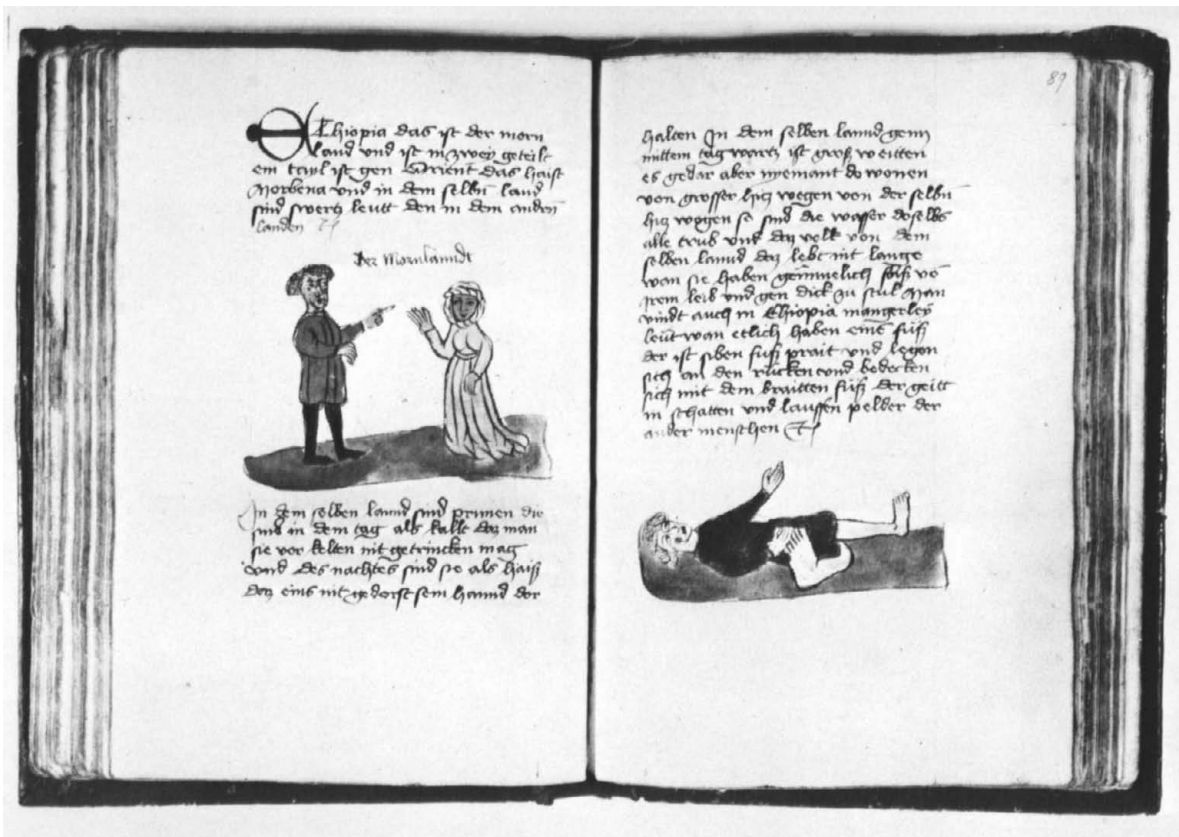 Ethiopia das ist der morn
land vnd ist in zwey geteilt
ein tayl ist gen Orient das haist
Morbena vnd in dem selbn̄ land
sind swertz leutt den in dem andern̄
landen
Der Mornlanndt
In dem selben lannd sind prunen die
sind in dem tag als kallt daz man
sie vor kelten nit getrincken mag
vnd des nachtes sind sie als haiß
daz eins nit gedorst sein hannd dor
89
halten In dem selben lannd genn
mittem tag wartz ist groß weitten
es gedar aber nyemant do wonen
von grosser hitz wegen von der selbn̄
hitz wegen so sind die wasser doselbs
alle trub vnd daz volk von dem
selben lannd daz lebt nit lange
wan sie haben vō
irem leib vnd gen dick zu stul Man
vindt auch in Ethiopia mangerley
leut wan etlich haben eins fuß
der ist siben fuß prait vnd legen
sich an den rucken vnd bedecken
sich mit dem braitten fuß der geitt
in schatten vnd lauffen pelder der
ander menschen